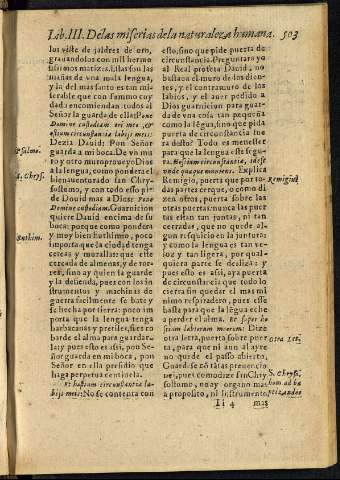 Lib. III. De las miserias de la naturaleza humana. 503
los viste de jaldres de oro,
grauandolos con mil hermo
sissimos matizes. Estas son las
mañas de vna mala lengua,
y la del mas santo es tan mi
serable que con summo cuy
dado encomiendan todos al
Señor la guarda de ella: Pone
Domine custodiam ori meo, et
ostium circunstantiæ labijs meis:
Dezia Dauid: Pon Señor
guarda a mi boca. De vn mu
ro y otro muro proueyo Dios
a la lengua, como pondera el
bienauenturado san Chry-
sostomo, y con todo esso pi-
de Dauid mas a Dios: Pone
Domine custodiam. Guarnicion
quiere Dauid encima de su
boca: porque como pondera
y muy bien Euthimio, poco
importa que la ciudad tenga
cercas y murallas: que este
cercada de almenas, y de tor-
res, sino ay quien la guarde
y la defienda, pues con los in
strumentos y machinas de
guerra facilmente se bate y
se hecha por tierra: poco im
porta que la lengua tenga
barbacanas y pretiles, si esto
barde el alma para guardar-
la: y pues esto es assi, pon Se-
ñor guarda en mi boca, pon
Señor en ella presidio que
haga perpetua centinela.
Et hostium circunstantiæ la-
bijs meis: No se contenta con
Psalmo.
S. Chrys.
Euthim.
esto, sino que pide puerta de
circunstancia. Preguntara yo
al Real profeta Dauid, no
bastaua el muro de los dien-
tes, y el contramuro de los
labios, y el auer pedido a
Dios guarnicion para guar-
da de vna cosa tan pequeña
como la lẽgua, sino que pida
puerta de circunstancia so-
bre todo? Todo es menester
para que la lengua este segu-
ra. Hostium circunstantiæ, id est
vnde quaque munitum. Explica
Remigio, puerta que por to-
das partes cerque, o como di-
zen otros, puerta sobre las
otras puertas: nunca las puer
tas estan tan juntas, ni tan
cerradas, que no quede al-
gun resquicio en la juntura:
y como la lengua es tan ve-
loz y tan ligera, por qual-
quiera parte se desliza: y
pues esto es assi, aya puerta
de circunstancia que todo lo
cierra sin quedar el mas mi
nimo respiradero, pues esse
basta para que la lẽgua eche
a perder el alma. Et super ho
stium labiorum meorum: Dize
otra letra, puerta sobre puer
ta, para que ni aun al ayre
no quede el passo abierto.
Guarde se cõ tãtas preuencio
nes, pues como dize san Chry
sostomo, no ay organo mas
a proposito, ni instrumento
Remigius.
Otra Let.
S. Chryso.
hom ad ba
ptizandos
Ii 4 mas